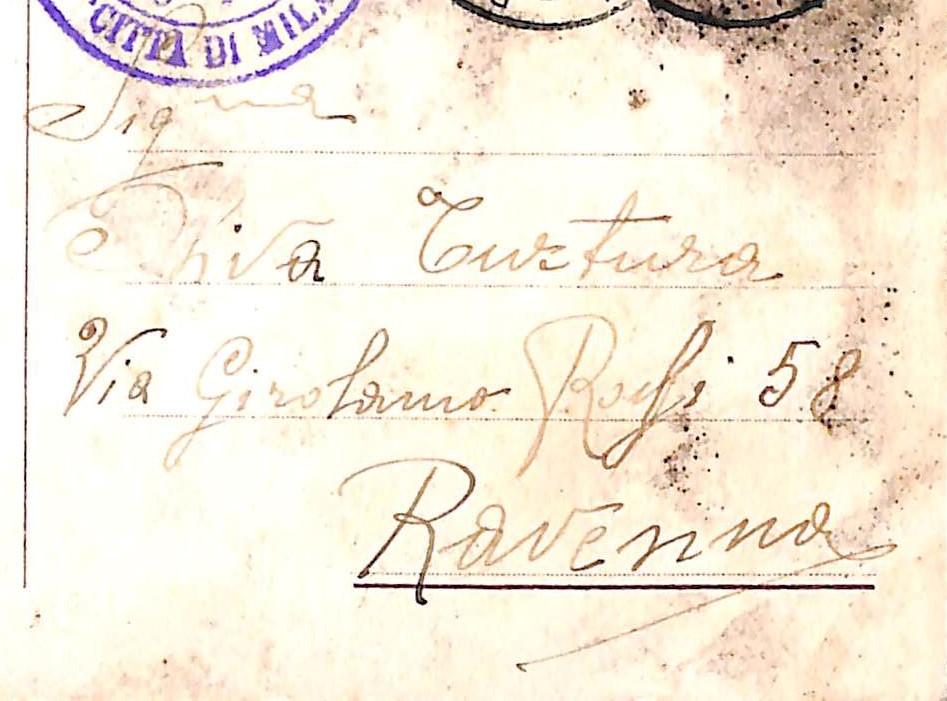 CITTÀ DI MILA
Signa
Diva Turtura
Via Girolamo Rossi 58
Ravenna